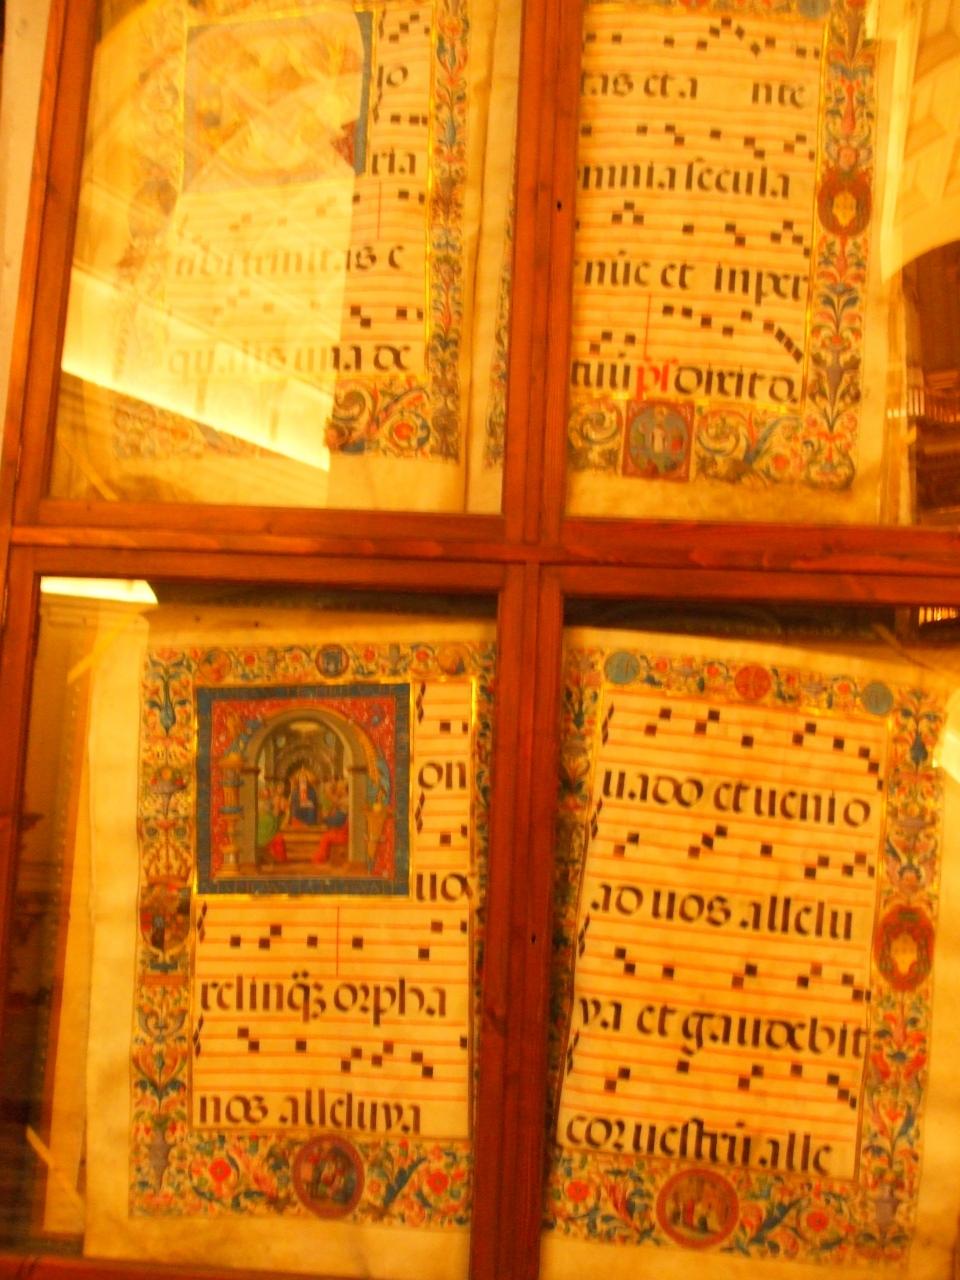 lo
ria
tibi trinitas e
qualis una de
tas et a nte
omnia secula
nūc et in per
tuū ps̄ Spirito.
on
uos
relinq̄ȝ orpha
nos alleluya
uado et uenio
ad uos allelu
ya et gaudebit
cor uestrū alle